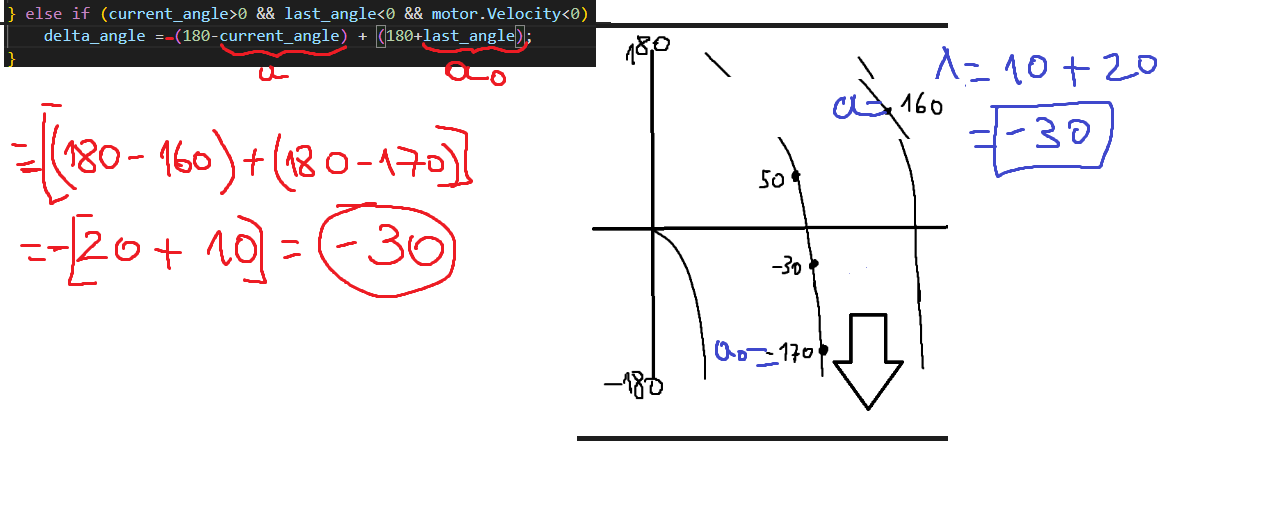 } else if (current_angle>0 && last_angle<0 && motor.Velocity<0)
delta_angle =-(180-current_angle) + (180+last_angle);
}
a
a₀
=[(180-160)+(180-170)]
=-[20+10]=-30
180
50
-30
a₀=-170
-180
a=160
λ=10+20
=-30